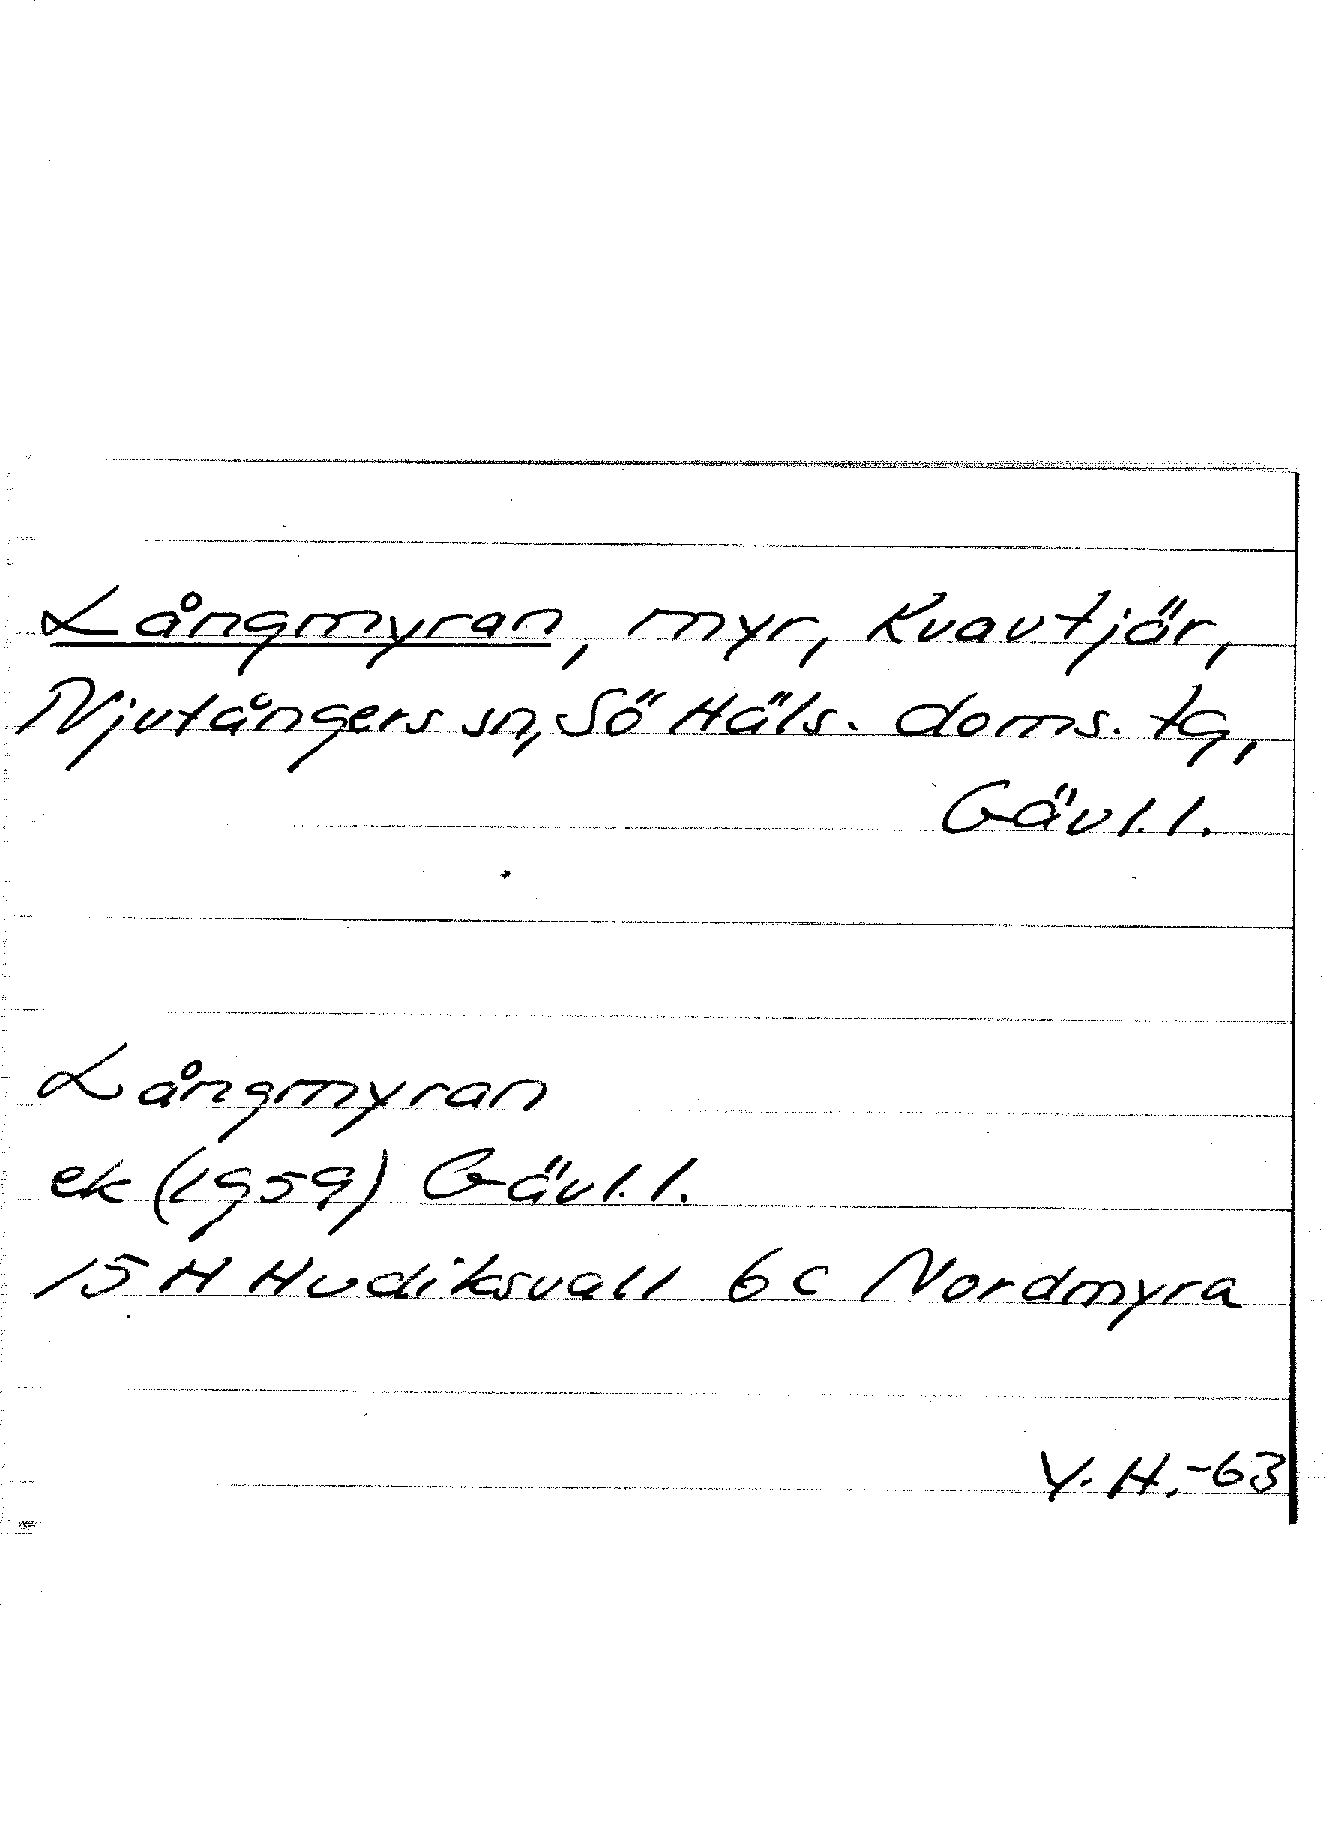 Långmyran, myr, Kvavtjär,
Njutångers sn, Sö Häls. doms. tg,
Gävl. l.
Långmyran
ek (1959) Gävl. l.
15 H Hudiksvall 6c Nordmyra
Y. H. -63